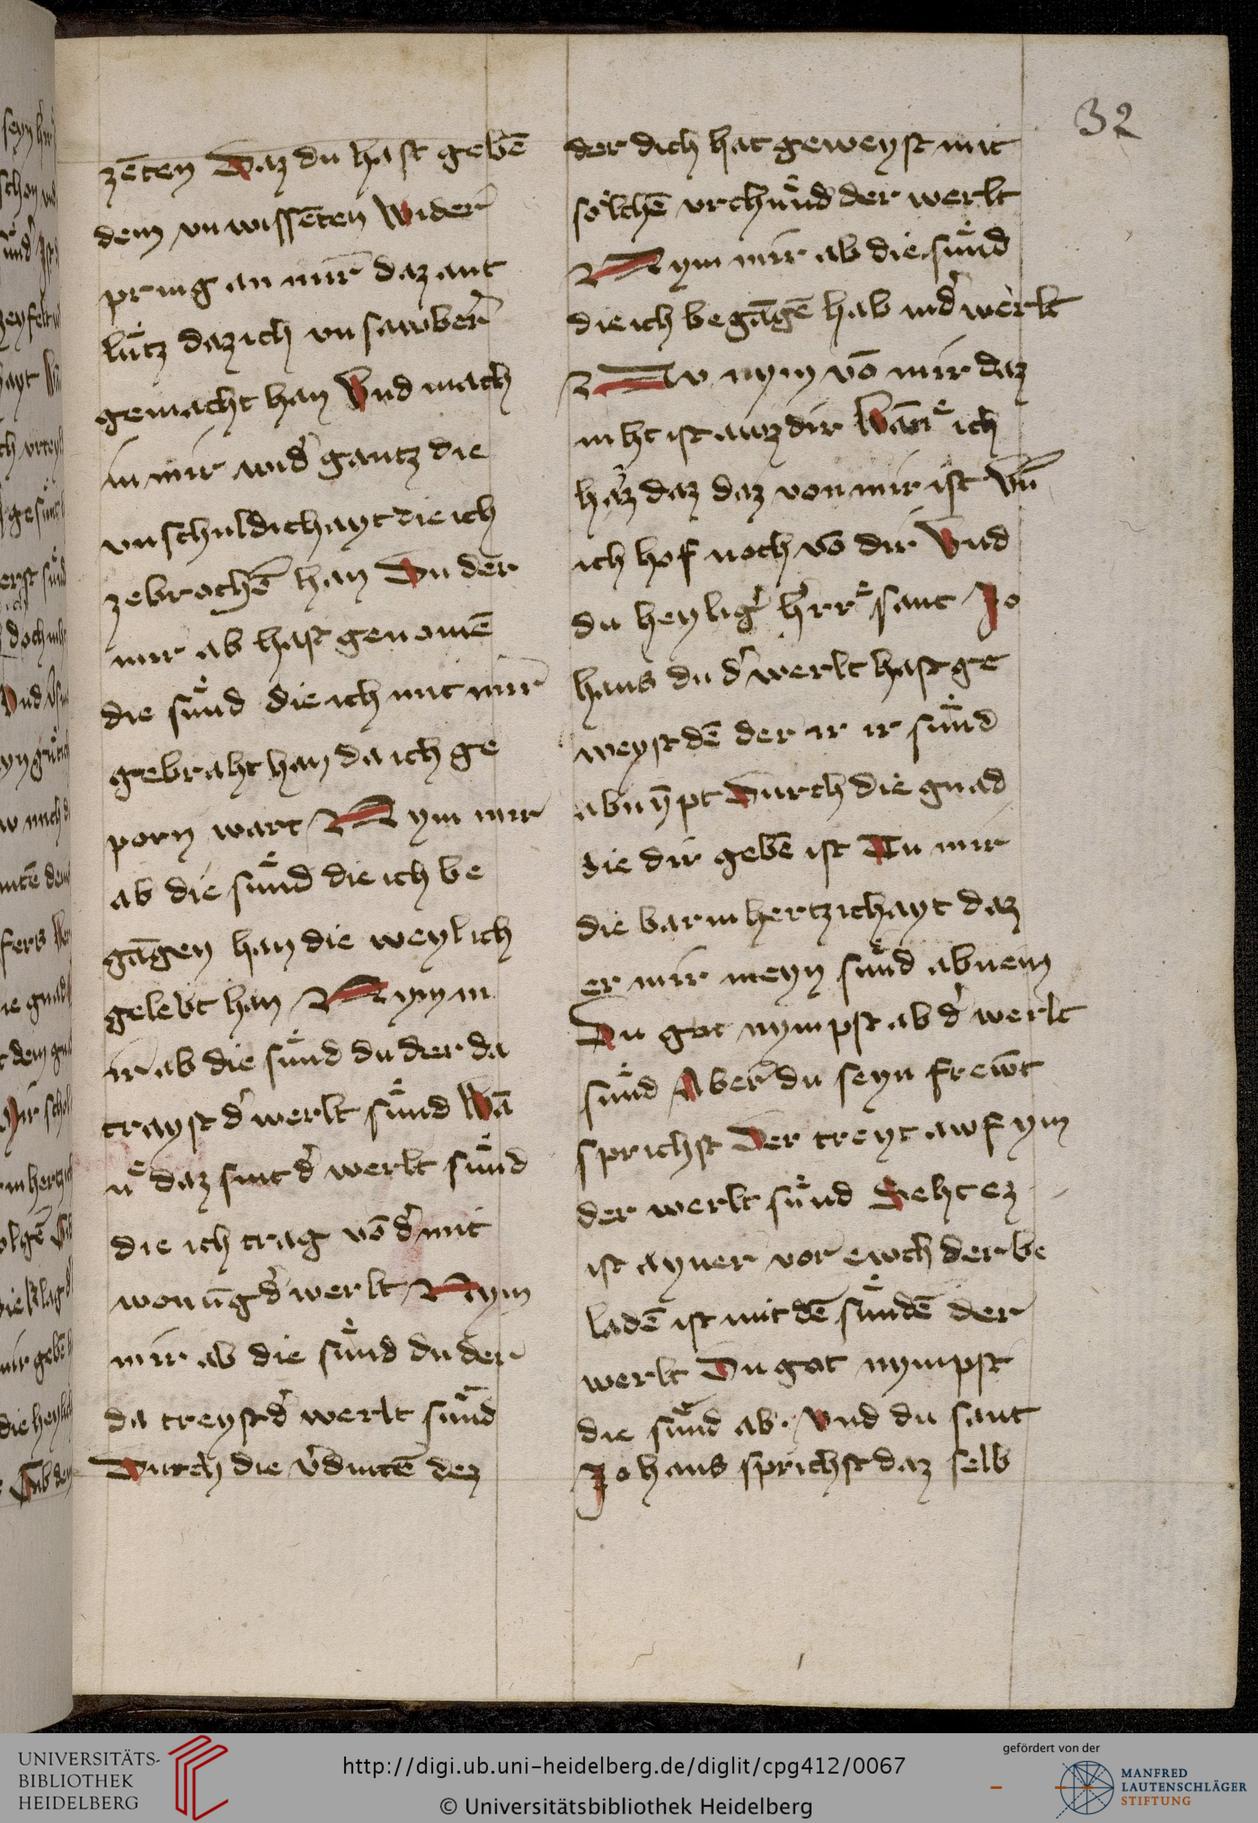 32
zēten Daz du hast gebē
dem vnwissēten Wider
pring an mir daz ant
lůtz daz ich vnsawber
gemacht han Vnd mach
in mir wid͛ gantz die
vnschuldichayt die ich
zebrochē han Du der
mir ab hast genomē
die sůnd die ich mit mir
gebraht han da ich ge
porn wart Nym mir
ab die sůnd die ich be
gāgen han die weyl ich
gelebt han Nym m
ir ab die sůnd du der da
trayst d͛ werlt sůnd Wā
nͤ daz sint d͛ werlt sůnd
die ich trag vō d͛ mit
wonūg d͛ werlt Nym
mir ab die sůnd du der
da treyst d͛ werlt sůnd
Durch die v͛dintē dez
der dich hat geweyst mit
sölchē vrchůnd der werlt
Nym mir ab die sůnd
die ich begāgē hab in d͛ werlt
Nv nym vō mir daz
niht ist auz dir Wānͤ ich
haz daz daz von mir ist Vn̄
ich hof noch vō dir Vnd
du heylig͛ h͛rrͤ sant Jo
hans du d͛ werlt hast ge
weyst dē der ir ir sůnd
abnȳpt Durch die gnad
die dir gebē ist Tu mir
die barmhertzichayt daz
er mir meyn sůnd abnem
Du got nympst ab d͛ werlt
sůnd Aber du seyn frewt
sprichst Der treyt awf ym
der werlt sůnd Seht ez
ist ayner vor ewch der be
ladē ist mit dē sůndē der
werlt Du got nympst
die sůnd ab. Vnd du sant
Johans sprichst daz selb
UNIVERSITÄTS-
BIBLIOTHEK
HEIDELBERG
http://digi.ub.uni-heidelberg.de/diglit/cpg412/0067
© Universitätsbibliothek Heidelberg
gefördert von der
MANFRED
LAUTENSCHLÄGER
STIFTUNG